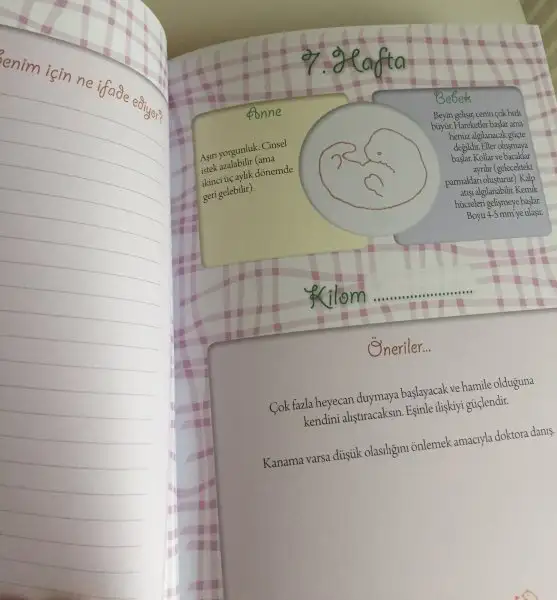 Benim için ne ifade ediyor?
7. Hafta
Anne
Aşırı yorgunluk. Cinsel
istek azalabilir (ama
ikinci üç aylık dönemde
geri gelebilir).
Bebek
Beyin gelişir, cenin çok hızlı
büyür. Hareketler başlar ama
henüz algılanacak güçte
değildir. Eller oluşmaya
başlar. Kollar ve bacaklar
ayrılır (gelecekteki
parmakları oluşturur). Kalp
atışı algılanabilir. Kemik
hücreleri gelişmeye başlar.
Boyu 4-5 mm'ye ulaşır.
Kilom ........................
Öneriler...
Çok fazla heyecan duymaya başlayacak ve hamile olduğuna
kendini alıştıracaksın. Eşinle ilişkiyi güçlendir.
Kanama varsa düşük olasılığını önlemek amacıyla doktora danış.